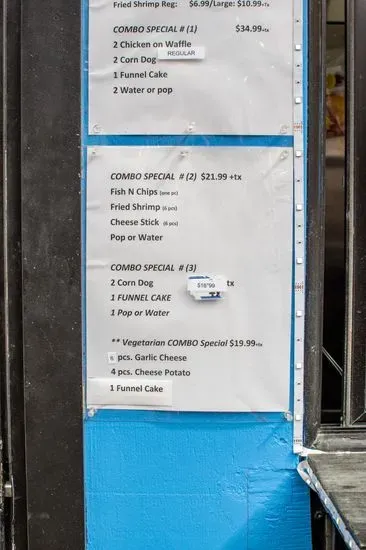 Fried Shrimp Reg: $6.99/Large: $10.99+tx
COMBO SPECIAL # (1) $34.99+tx
2 Chicken on Waffle
REGULAR
2 Corn Dog
1 Funnel Cake
2 Water or pop
COMBO SPECIAL # (2) $21.99 +tx
Fish N Chips (one pc)
Fried Shrimp (6 pcs)
Cheese Stick (6 pcs)
Pop or Water
COMBO SPECIAL # (3)
2 Corn Dog $16.99 tx
1 FUNNEL CAKE
1 Pop or Water
** Vegetarian COMBO Special $19.99+tx
6 pcs. Garlic Cheese
4 pcs. Cheese Potato
1 Funnel Cake